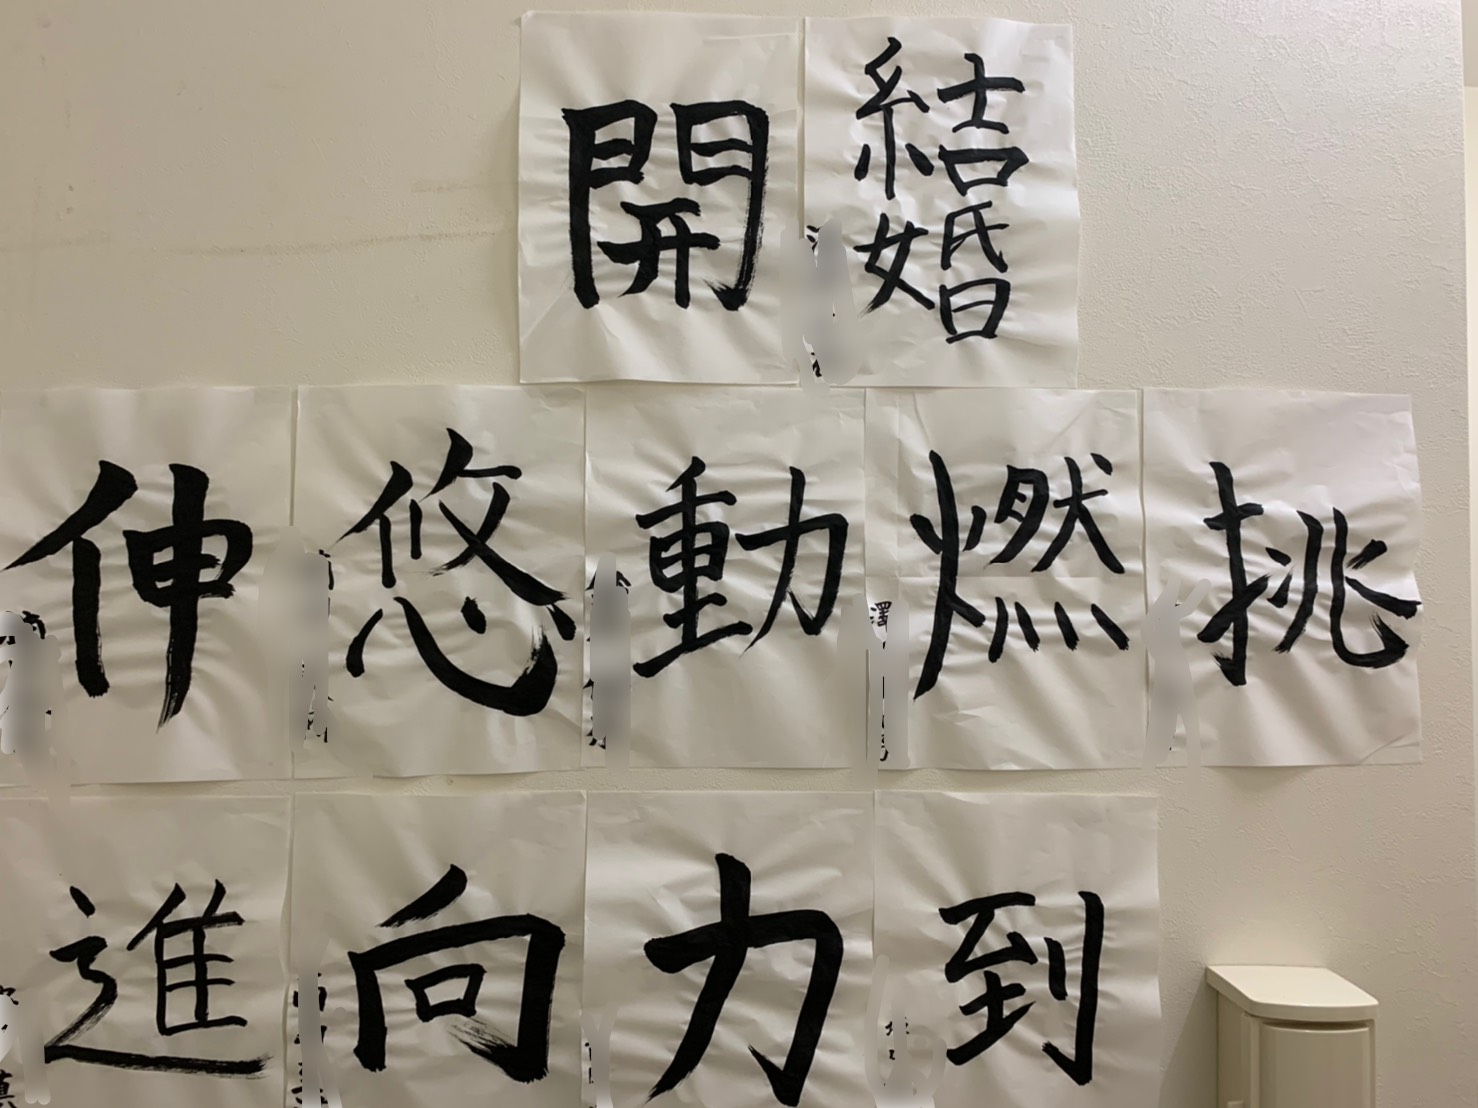 結婚
開
挑
燃
動
悠
伸
到
力
向
進